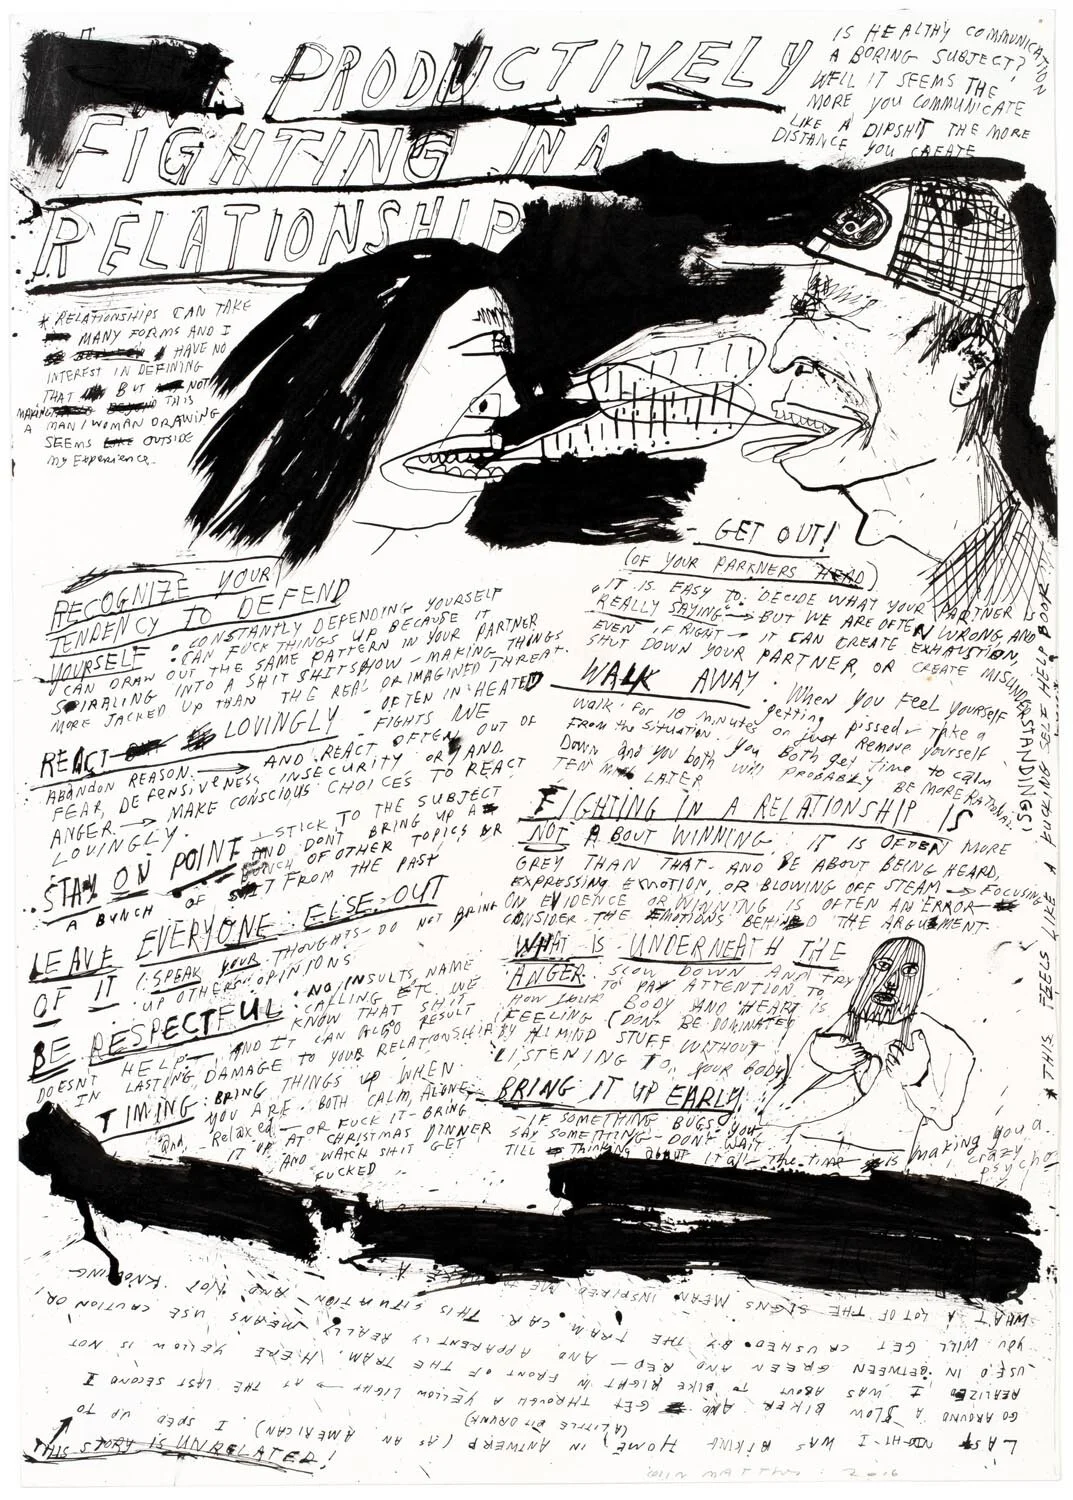 PRODUCTIVELY
FIGHTING IN A
RELATIONSHIP
IS HEALTHY COMMUNICATION
A BORING SUBJECT?
WELL IT SEEMS THE
MORE YOU COMMUNICATE
LIKE A DIPSHIT THE MORE
DISTANCE YOU CREATE
* RELATIONSHIPS CAN TAKE
MANY FORMS AND I
HAVE NO
INTEREST IN DEFINING
THAT BUT NOT
MAKING THIS
A MAN/WOMAN DRAWING
SEEMS LIKE OUTSIDE
MY EXPERIENCE.
RECOGNIZE YOUR
TENDENCY TO DEFEND
YOURSELF • CONSTANTLY DEPENDING YOURSELF
• CAN FUCK THINGS UP BECAUSE IT
CAN DRAW OUT THE SAME PATTERN IN YOUR PARTNER
SPIRALING INTO A SHIT SHITSHOW - MAKING THINGS
MORE JACKED UP THAN THE REAL OR IMAGINED THREAT.
REACT LOVINGLY - OFTEN IN HEATED
FIGHTS WE
ABANDON REASON → AND REACT OFTEN OUT OF
FEAR, DEFENSIVENESS INSECURITY OR/AND
ANGER. → MAKE CONSCIOUS CHOICES TO REACT
LOVINGLY.
STAY ON POINT - STICK TO THE SUBJECT
AND DON'T BRING UP A
BUNCH OF OTHER TOPICS OR
A BUNCH OF SHIT FROM THE PAST
LEAVE EVERYONE ELSE OUT
OF IT (SPEAK YOUR THOUGHTS - DO NOT BRING
UP OTHERS OPINIONS
BE RESPECTFUL • NO INSULTS, NAME
CALLING ETC WE
KNOW THAT SHIT
DOESNT HELP - AND IT CAN ALSO RESULT
IN LASTING DAMAGE TO YOUR RELATIONSHIP
TIMING: BRING THINGS UP WHEN
YOU ARE BOTH CALM, ALONE
and Relaxed - OR FUCK IT - BRING
IT UP AT CHRISTMAS DINNER
AND WATCH SHIT GET
FUCKED
- GET OUT!
(OF YOUR PARKNERS HEAD)
• IT IS EASY TO DECIDE WHAT YOUR PARTNER IS
REALLY SAYING → BUT WE ARE OFTEN WRONG, AND
EVEN IF RIGHT → IT CAN CREATE EXHAUSTION,
SHUT DOWN YOUR PARTNER, OR CREATE MISUNDERSTANDINGS!
WALK AWAY • When you Feel yourself
getting pissed - take a
walk for 10 minutes or just Remove yourself
From the situation. You Both get time to calm
Down and you both will PROBABLY BE MORE RATIONAL
TEN MIN LATER
FIGHTING IN A RELATIONSHIP IS
NOT ABOUT WINNING: IT IS OFTEN MORE
GREY THAN THAT - AND BE ABOUT BEING HEARD,
EXPRESSING EMOTION, OR BLOWING OFF STEAM → FOCUSING
ON EVIDENCE OR WINNING IS OFTEN AN ERROR -
CONSIDER THE EMOTIONS BEHIND THE ARGUEMENT.
WHAT IS UNDERNEATH THE
ANGER: SLOW DOWN AND TRY
TO PAY ATTENTION TO
HOW YOUR BODY AND HEART IS
FEELING (DONT BE DOMINATED
BY ALL MIND STUFF WITHOUT
LISTENING TO YOUR BODY)
BRING IT UP EARLY
- IF SOMETHING BUGS YOU
SAY SOMETHING - DON'T WAIT
TILL Thinking about it all the time is making you a
crazy
psycho
* THIS FEELS LIKE A FUCKING SELF HELP BOOK
THIS STORY IS UNRELATED!
LAST NIGHT I WAS BIKING HOME IN ANTWERP (AS AN AMERICAN) I SPED UP TO
(A LITTLE BIT DRUNK)
GO AROUND A SLOW BIKER AND GET THROUGH A YELLOW LIGHT → AT THE LAST SECOND I
REALIZED I WAS ABOUT TO BIKE RIGHT IN FRONT OF THE TRAM. HERE YELLOW IS NOT
USED IN BETWEEN GREEN AND RED - AND APPARENTLY REALLY MEANS USE CAUTION OR
YOU WILL GET CRUSHED BY THE TRAM CAR. THIS SITUATION AND NOT KNOWING
WHAT A LOT OF THE SIGNS MEAN INSPIRED ME
2016